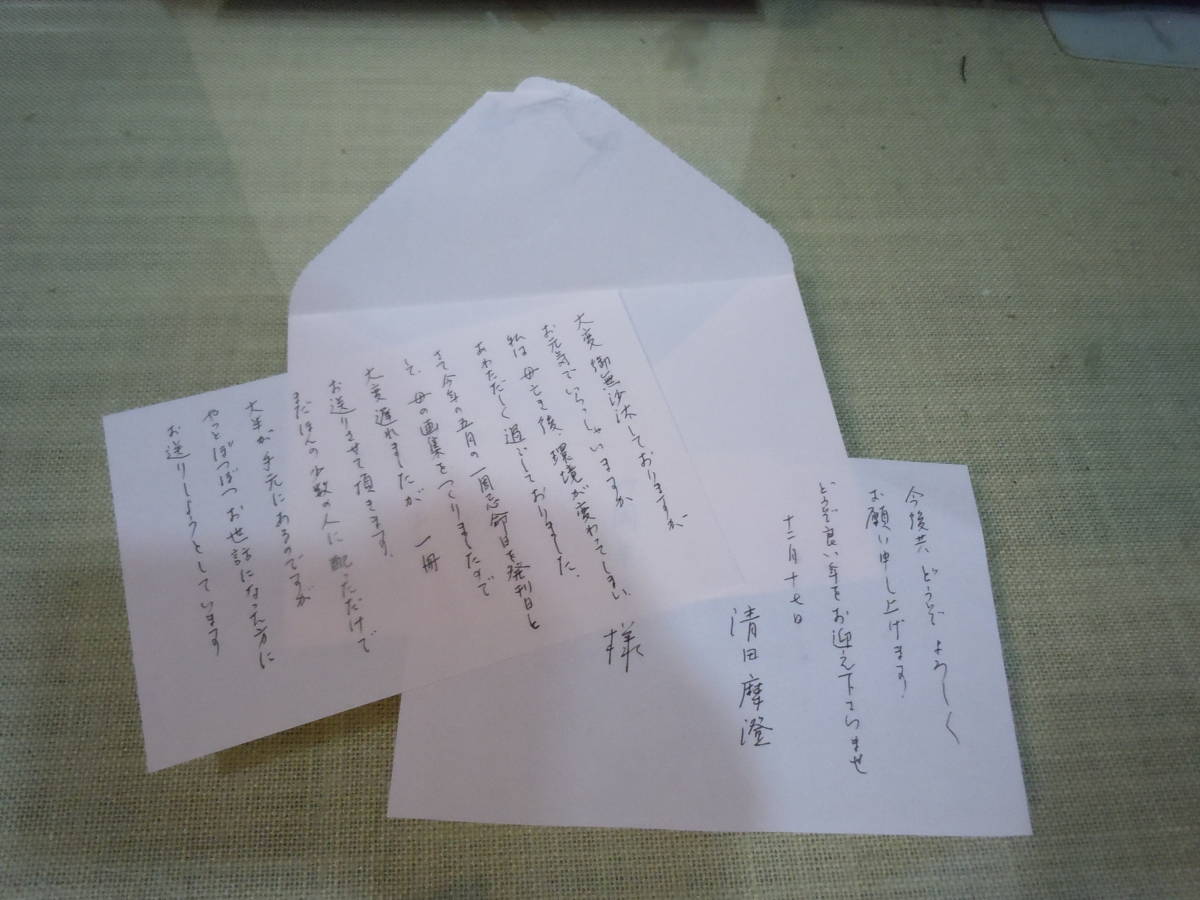 大変御無沙汰しておりますが
お元気でいらっしゃいますか
私は母亡き後、環境が変わってしまい、
あわただしく過ごしておりました。
さて今年の五月の一周忌命日を発刊日と
して、母の画集をつくりましたので
大変遅れましたが 一冊
お送りさせて頂きます。
まだほんの少数の人に配っただけで
大半が手元にあるのですが
やっとぼつぼつお世話になった方に
お送りしようとしています
今後共どうぞよろしく
お願い申し上げます。
どうぞ良い年をお迎え下さいませ
十二月十七日
清田摩澄
様